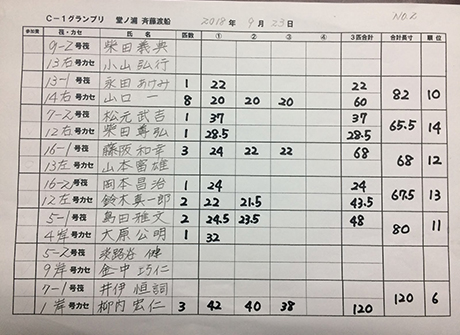 C-1グランプリ 堂ノ浦 斉藤渡船 2018 年 9 月 23 日 NO.2
参加費 筏・カセ 氏 名 匹数 ① ② ③ 3匹合計 合計長寸 順位
9-2 号筏 柴田義典
13右 号カセ 小山弘行
13-1 号筏 永田あけみ 1 22 22
14右 号カセ 山口 一 8 20 20 20 60 82 10
7-2 号筏 松元武吉 1 37 37
12右 号カセ 柴田尊弘 1 28.5 28.5 65.5 14
16-1 号筏 藤阪和幸 3 24 22 22 68
13左 号カセ 山本富雄 68 12
16-2 号筏 岡本昌治 1 24 24
12左 号カセ 鈴木真一郎 2 22 21.5 43.5 67.5 13
5-1 号筏 島田雅文 2 24.5 23.5 48
4岸 号カセ 大原公明 1 32 80 11
5-2 号筏 淡路谷 健
9岸 号カセ 金中巧仁
7-1 号筏 井伊恒詞
1岸 号カセ 柳内宏仁 3 42 40 38 120 120 6